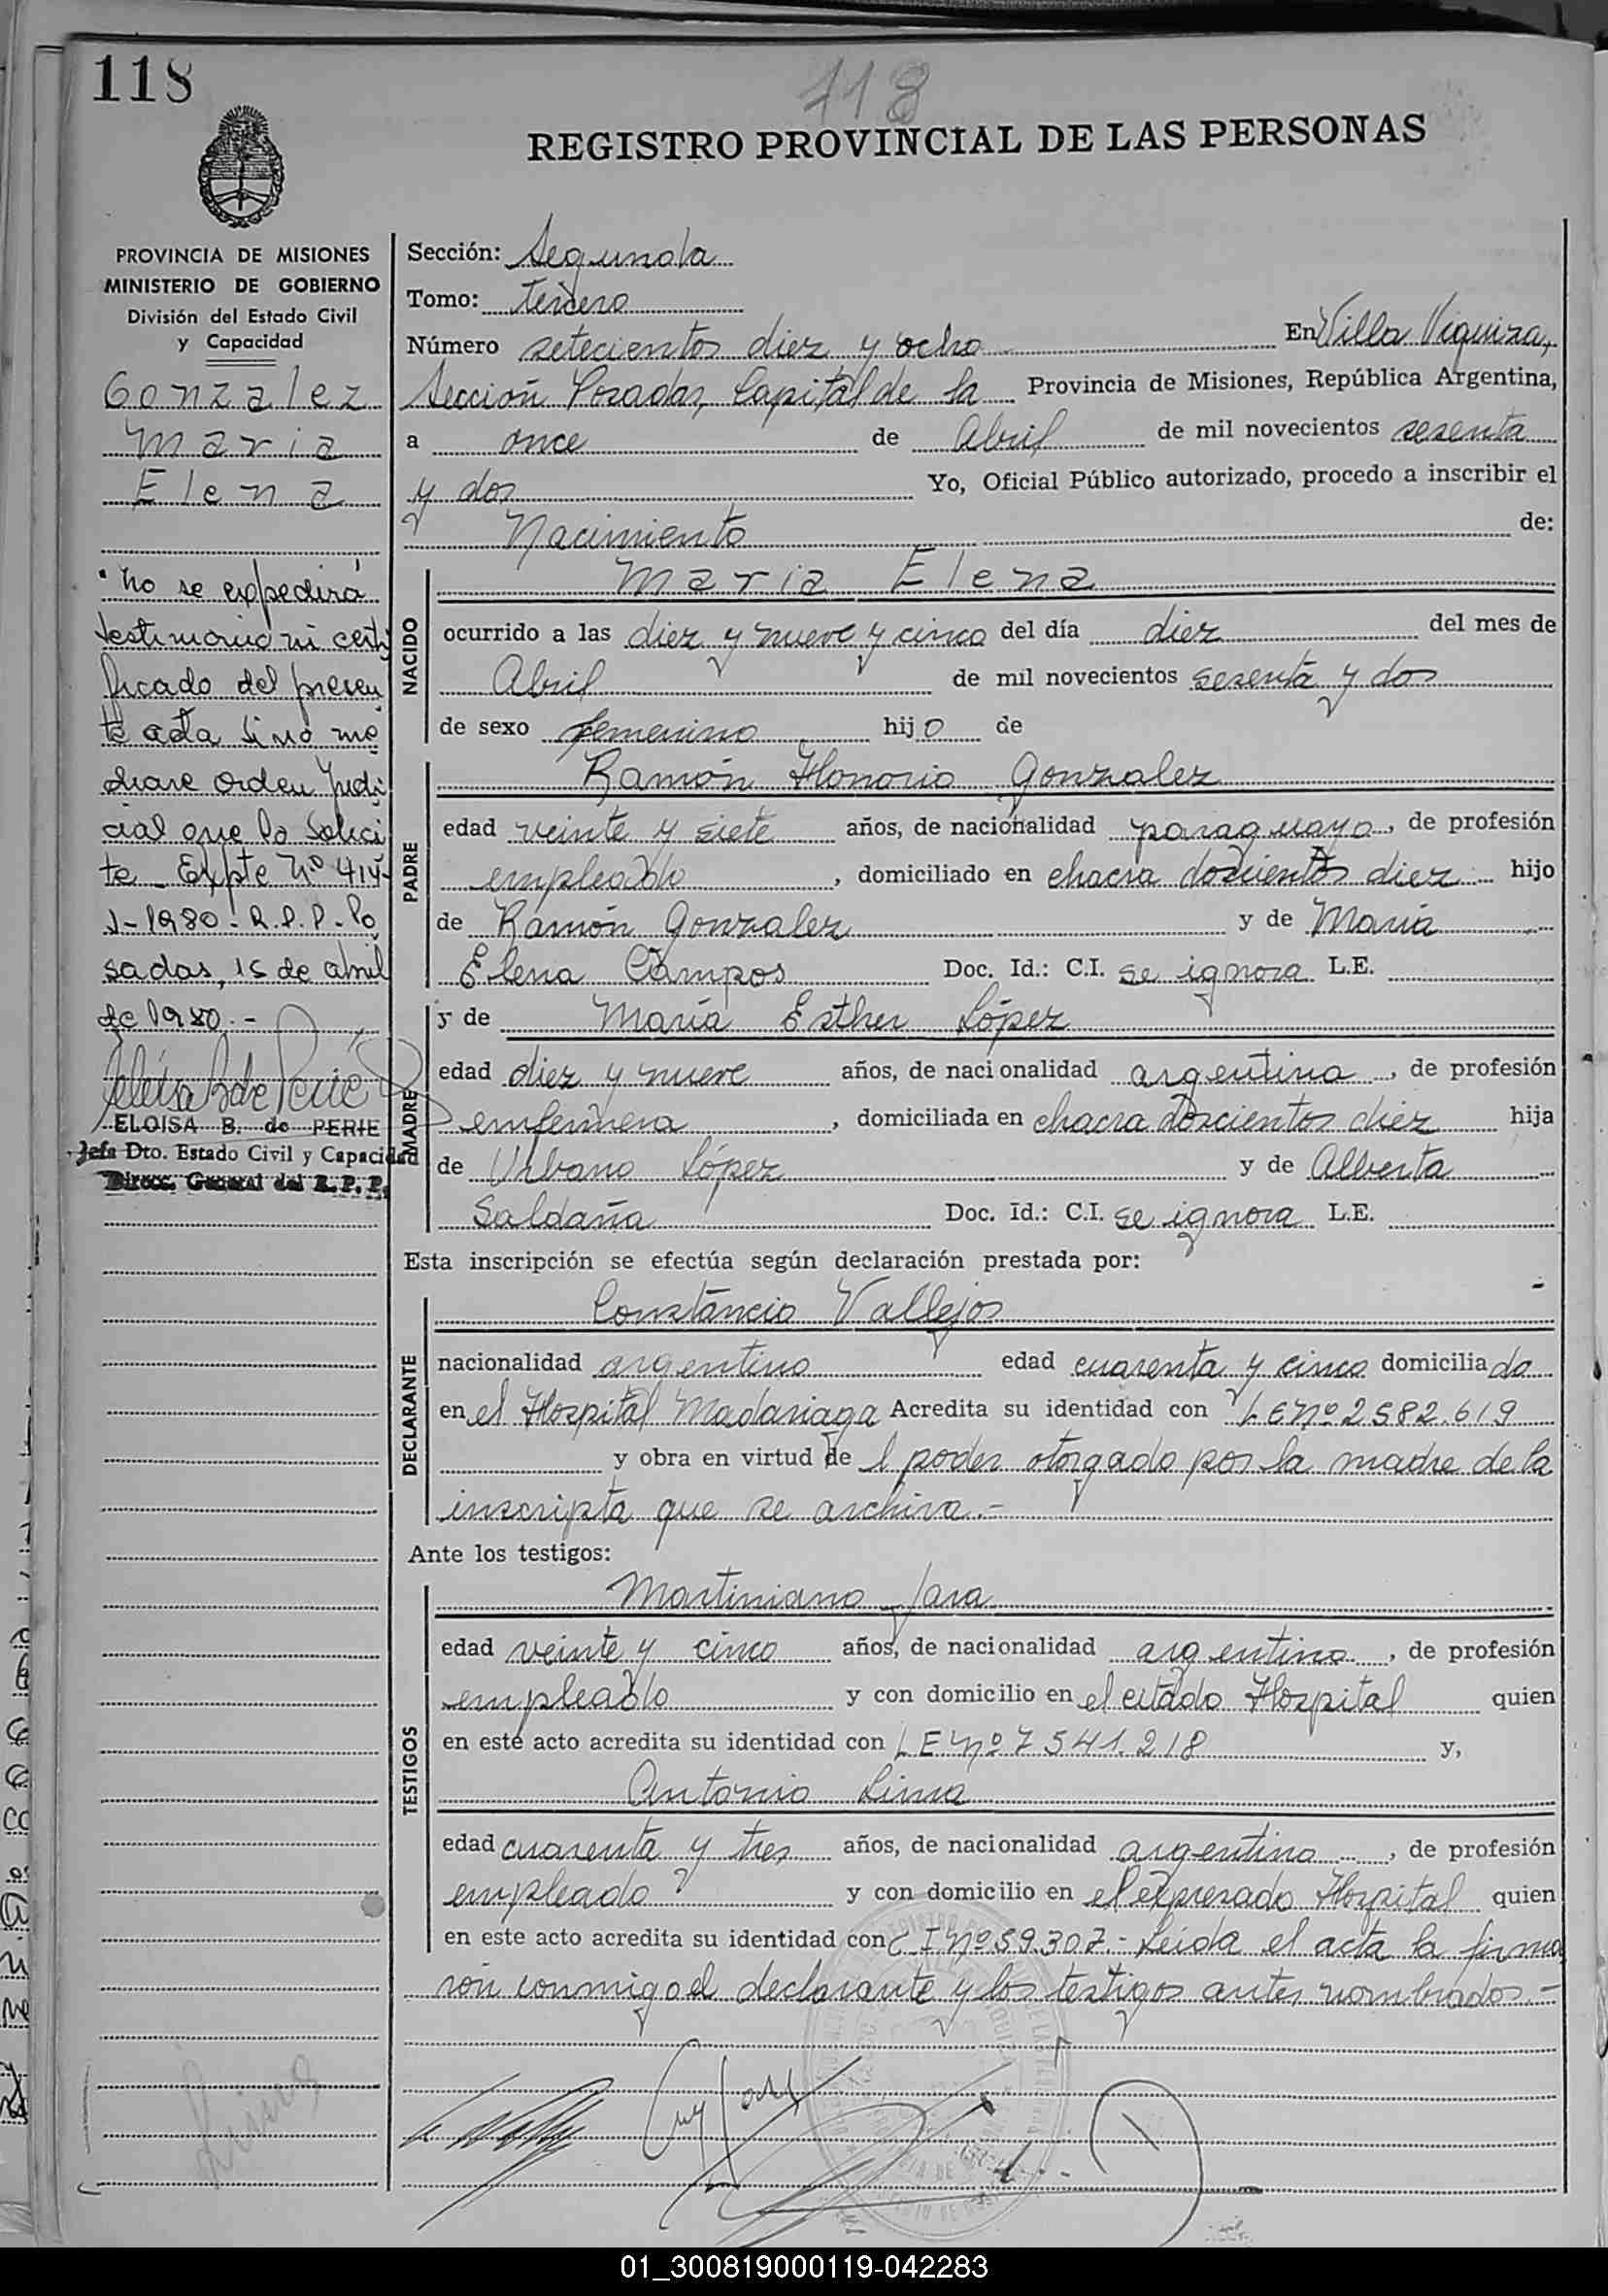 118
118
REGISTRO PROVINCIAL DE LAS PERSONAS
PROVINCIA DE MISIONES
MINISTERIO DE GOBIERNO
División del Estado Civil
y Capacidad
Gonzalez
Maria
Elena
No se expedirá
testimonio ni certi
ficado del presen
te acta sino me
diare orden judi
cial que lo solici
te - Expte Nº 414-
J-1980-R.P.P-Po
sadas, 15 de abril
de 1980.-
ELOISA B. de PERIE
Jefa Dto. Estado Civil y Capacidad
Direcc. General del R.P.P.
Sección: Segunda
Tomo: tercero
Número setecientos diez y ocho En Villa Urquiza,
Sección Posadas, Capital de la Provincia de Misiones, República Argentina,
a once de Abril de mil novecientos sesenta
y dos Yo, Oficial Público autorizado, procedo a inscribir el
Nacimiento de:
NACIDO
Maria Elena
ocurrido a las diez y nueve y cinco del día diez del mes de
Abril de mil novecientos sesenta y dos
de sexo femenino hijo de
PADRE
Ramón Honorio Gonzalez
edad veinte y siete años, de nacionalidad paraguayo, de profesión
empleado, domiciliado en chacra doscientos diez hijo
de Ramón Gonzalez y de María
Elena Campos Doc. Id.: C.I. se ignora L.E.
MADRE
y de María Esther López
edad diez y nueve años, de nacionalidad argentina, de profesión
enfermera, domiciliada en chacra doscientos diez hija
de Urbano López y de Alberta
Saldaña Doc. Id.: C.I. se ignora L.E.
Esta inscripción se efectúa según declaración prestada por:
DECLARANTE
Constancio Vallejos
nacionalidad argentino edad cuarenta y cinco domiciliado
en el Hospital Madariaga Acredita su identidad con LE Nº 2582.619
y obra en virtud del poder otorgado por la madre de la
inscripta que se archiva.-
Ante los testigos:
TESTIGOS
Martiniano Jara
edad veinte y cinco años, de nacionalidad argentino, de profesión
empleado y con domicilio en el citado Hospital quien
en este acto acredita su identidad con LE Nº 7541.218 y,
Antonio Lima
edad cuarenta y tres años, de nacionalidad argentino, de profesión
empleado y con domicilio en el expresado Hospital quien
en este acto acredita su identidad con C I Nº 59.307.- Leida el acta la firma
rón conmigo el declarante y los testigos antes nombrados.-
01_300819000119-042283